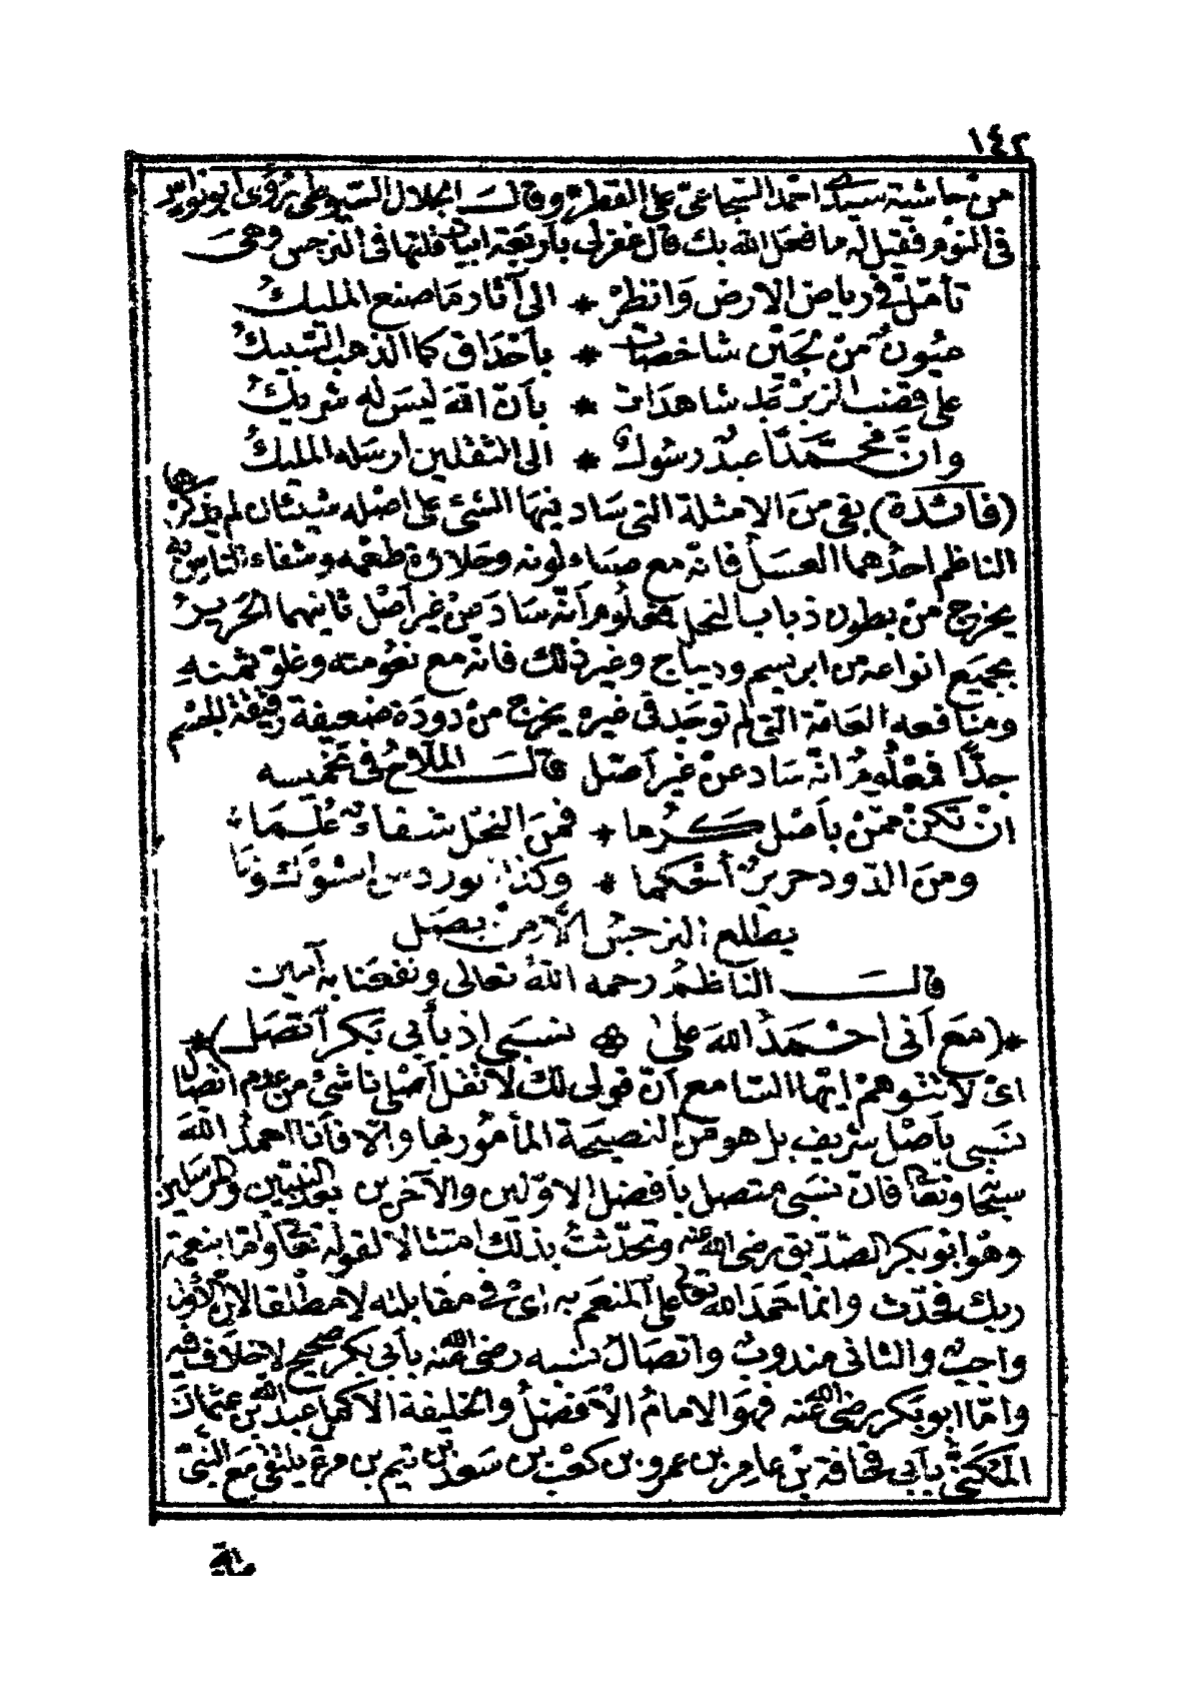 ١٤٢
من حاشية سيدى احمد السجاعى على القطر وقال الجلال السيوطى رؤى ابو نواس
فى النوم فقيل له ما فعل الله بك قال غفر لى بأربعة ابيات قلتها فى النرجس وهى
تأمل فى رياض الارض وانظر * الى آثار ما صنع المليك
عيون من لجين شاخصات * بأحداق كما الذهب السبيك
على قضب الزبرجد شاهدات * بأن الله ليس له شريك
وان محمدا عبد رسول * الى الثقلين ارسله المليك
(فائدة) بقى من الامثلة التى ساد فيها الشئ على اصله شيئان لم يذكرهما
الناظم احدهما العسل فانه مع صفاء لونه وحلاوة طعمه وشفاء الناس به
يخرج من بطون ذباب النحل فمعلوم أنه ساد من غير أصل ثانيهما الحرير
بجميع انواعه من ابريسم وديباج وغير ذلك فانه مع نعومته وغلو ثمنه
ومنافعه العامة التى لم توجد فى غيره يخرج من دودة ضعيفة رقيقة الجسم
جدا فمعلوم انه ساد عن غير أصل قال الملاح فى تخميسه
ان تكن ممن بأصل كرما * فمن النحل شفاء علما
ومن الدود حرير أحكما * وكذا الورد من الشوك وما
يطلع النرجس الا من بصل
قال الناظم رحمه الله تعالى ونفعنا به آمين
*(مع أنى احمد الله على * نسبى اذ بأبى بكر اتصل)*
اى لا تتوهم ايها السامع أن قولى لك لا تقل أصلى ناشئ من عدم اتصال
نسبى بأصل شريف بل هو من النصيحة المأمور بها والا فأنا احمد الله
سبحانه وتعالى فان نسبى متصل بأفضل الاولين والآخرين بعد النبيين والمرسلين
وهو ابو بكر الصديق رضى الله عنه وتحدثت بذلك امتثالا لقوله تعالى وأما بنعمة
ربك فحدث وانما حمد الله تعالى على المنعم به اى فى مقابلته لا مطلقا لان الاول
واجب والثانى مندوب واتصال نسبه رضى الله عنه بأبى بكر صحيح لا خلاف فيه
واما ابو بكر رضى الله عنه فهو الامام الافضل والخليفة الاكمل عبد الله بن عثمان
المكنى بأبى قحافة بن عامر بن عمرو بن كعب بن سعد بن تيم بن مرة يلتقى مع النبى